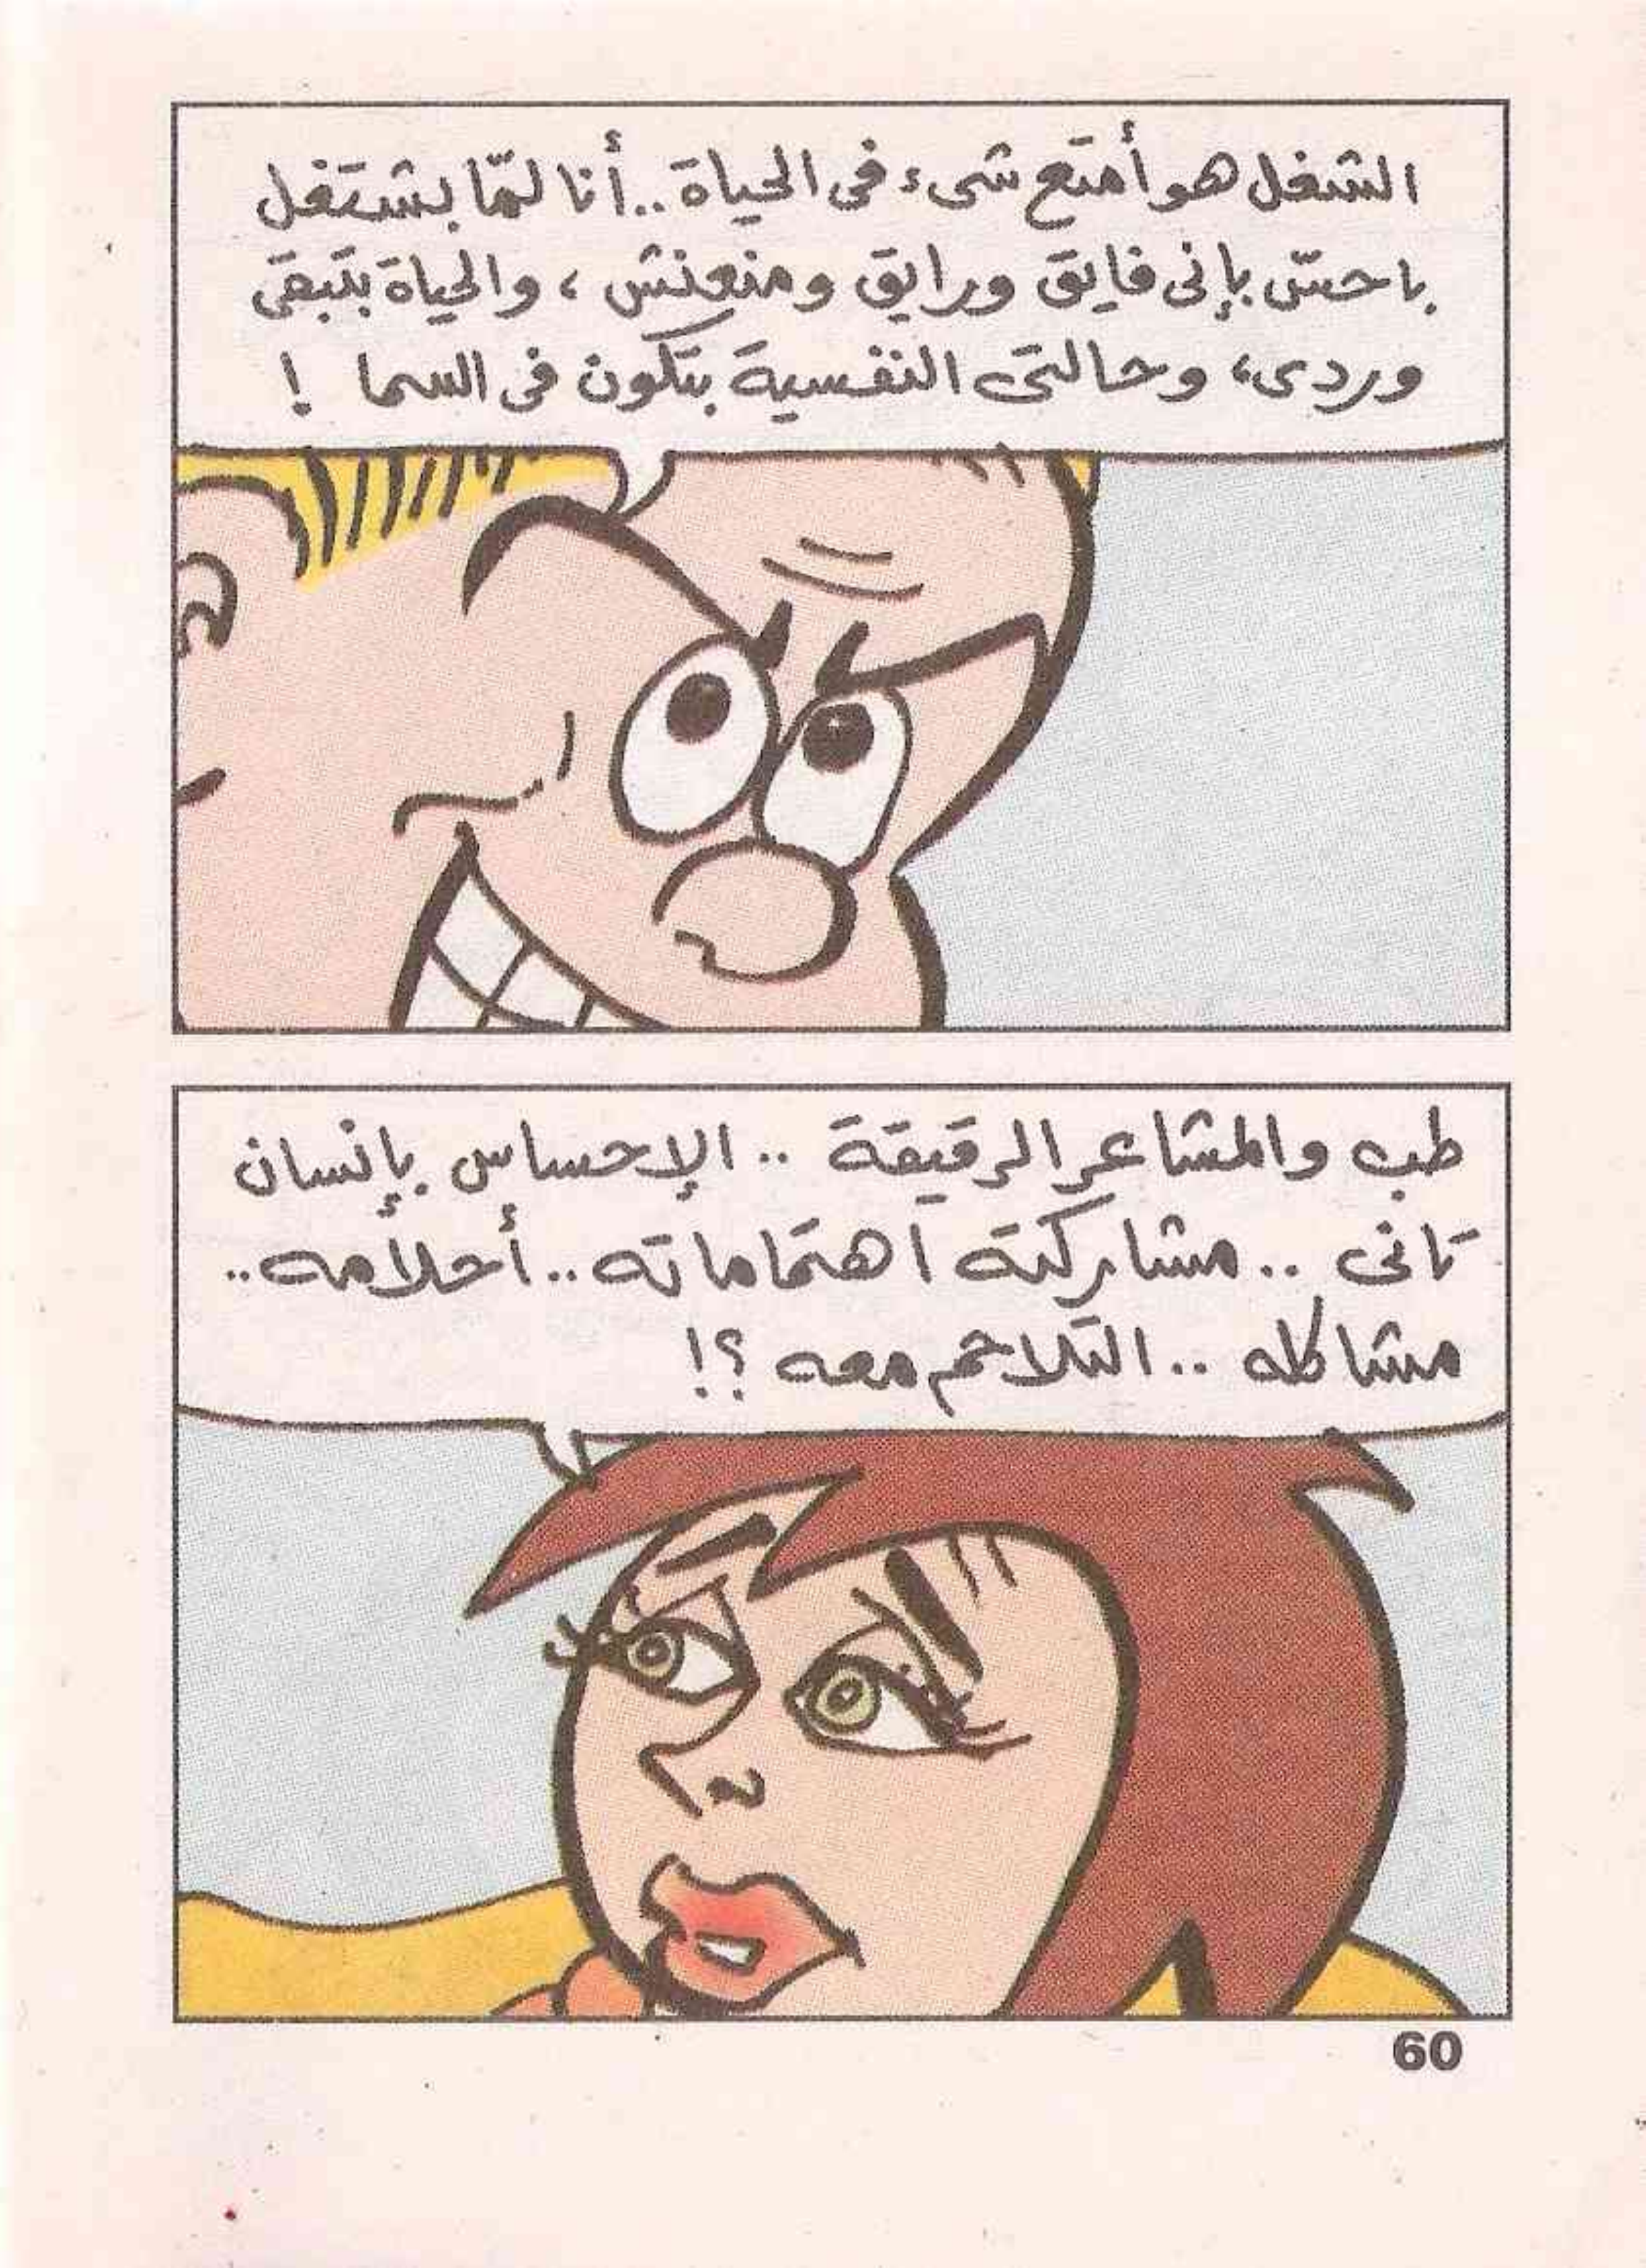 الشغل هو أمتع شىء فى الحياة.. أنا لمّا بشتغل
باحسّ بإنى فايق ورايق ومنعنش، والحياة بتبقى
وردى، وحالتى النفسية بتكون فى السما !
طب والمشاعر الرقيقة .. الإحساس بإنسان
تانى .. مشاركته اهتماماته.. أحلامه..
مشاكله .. التلاحم معه ؟!
60